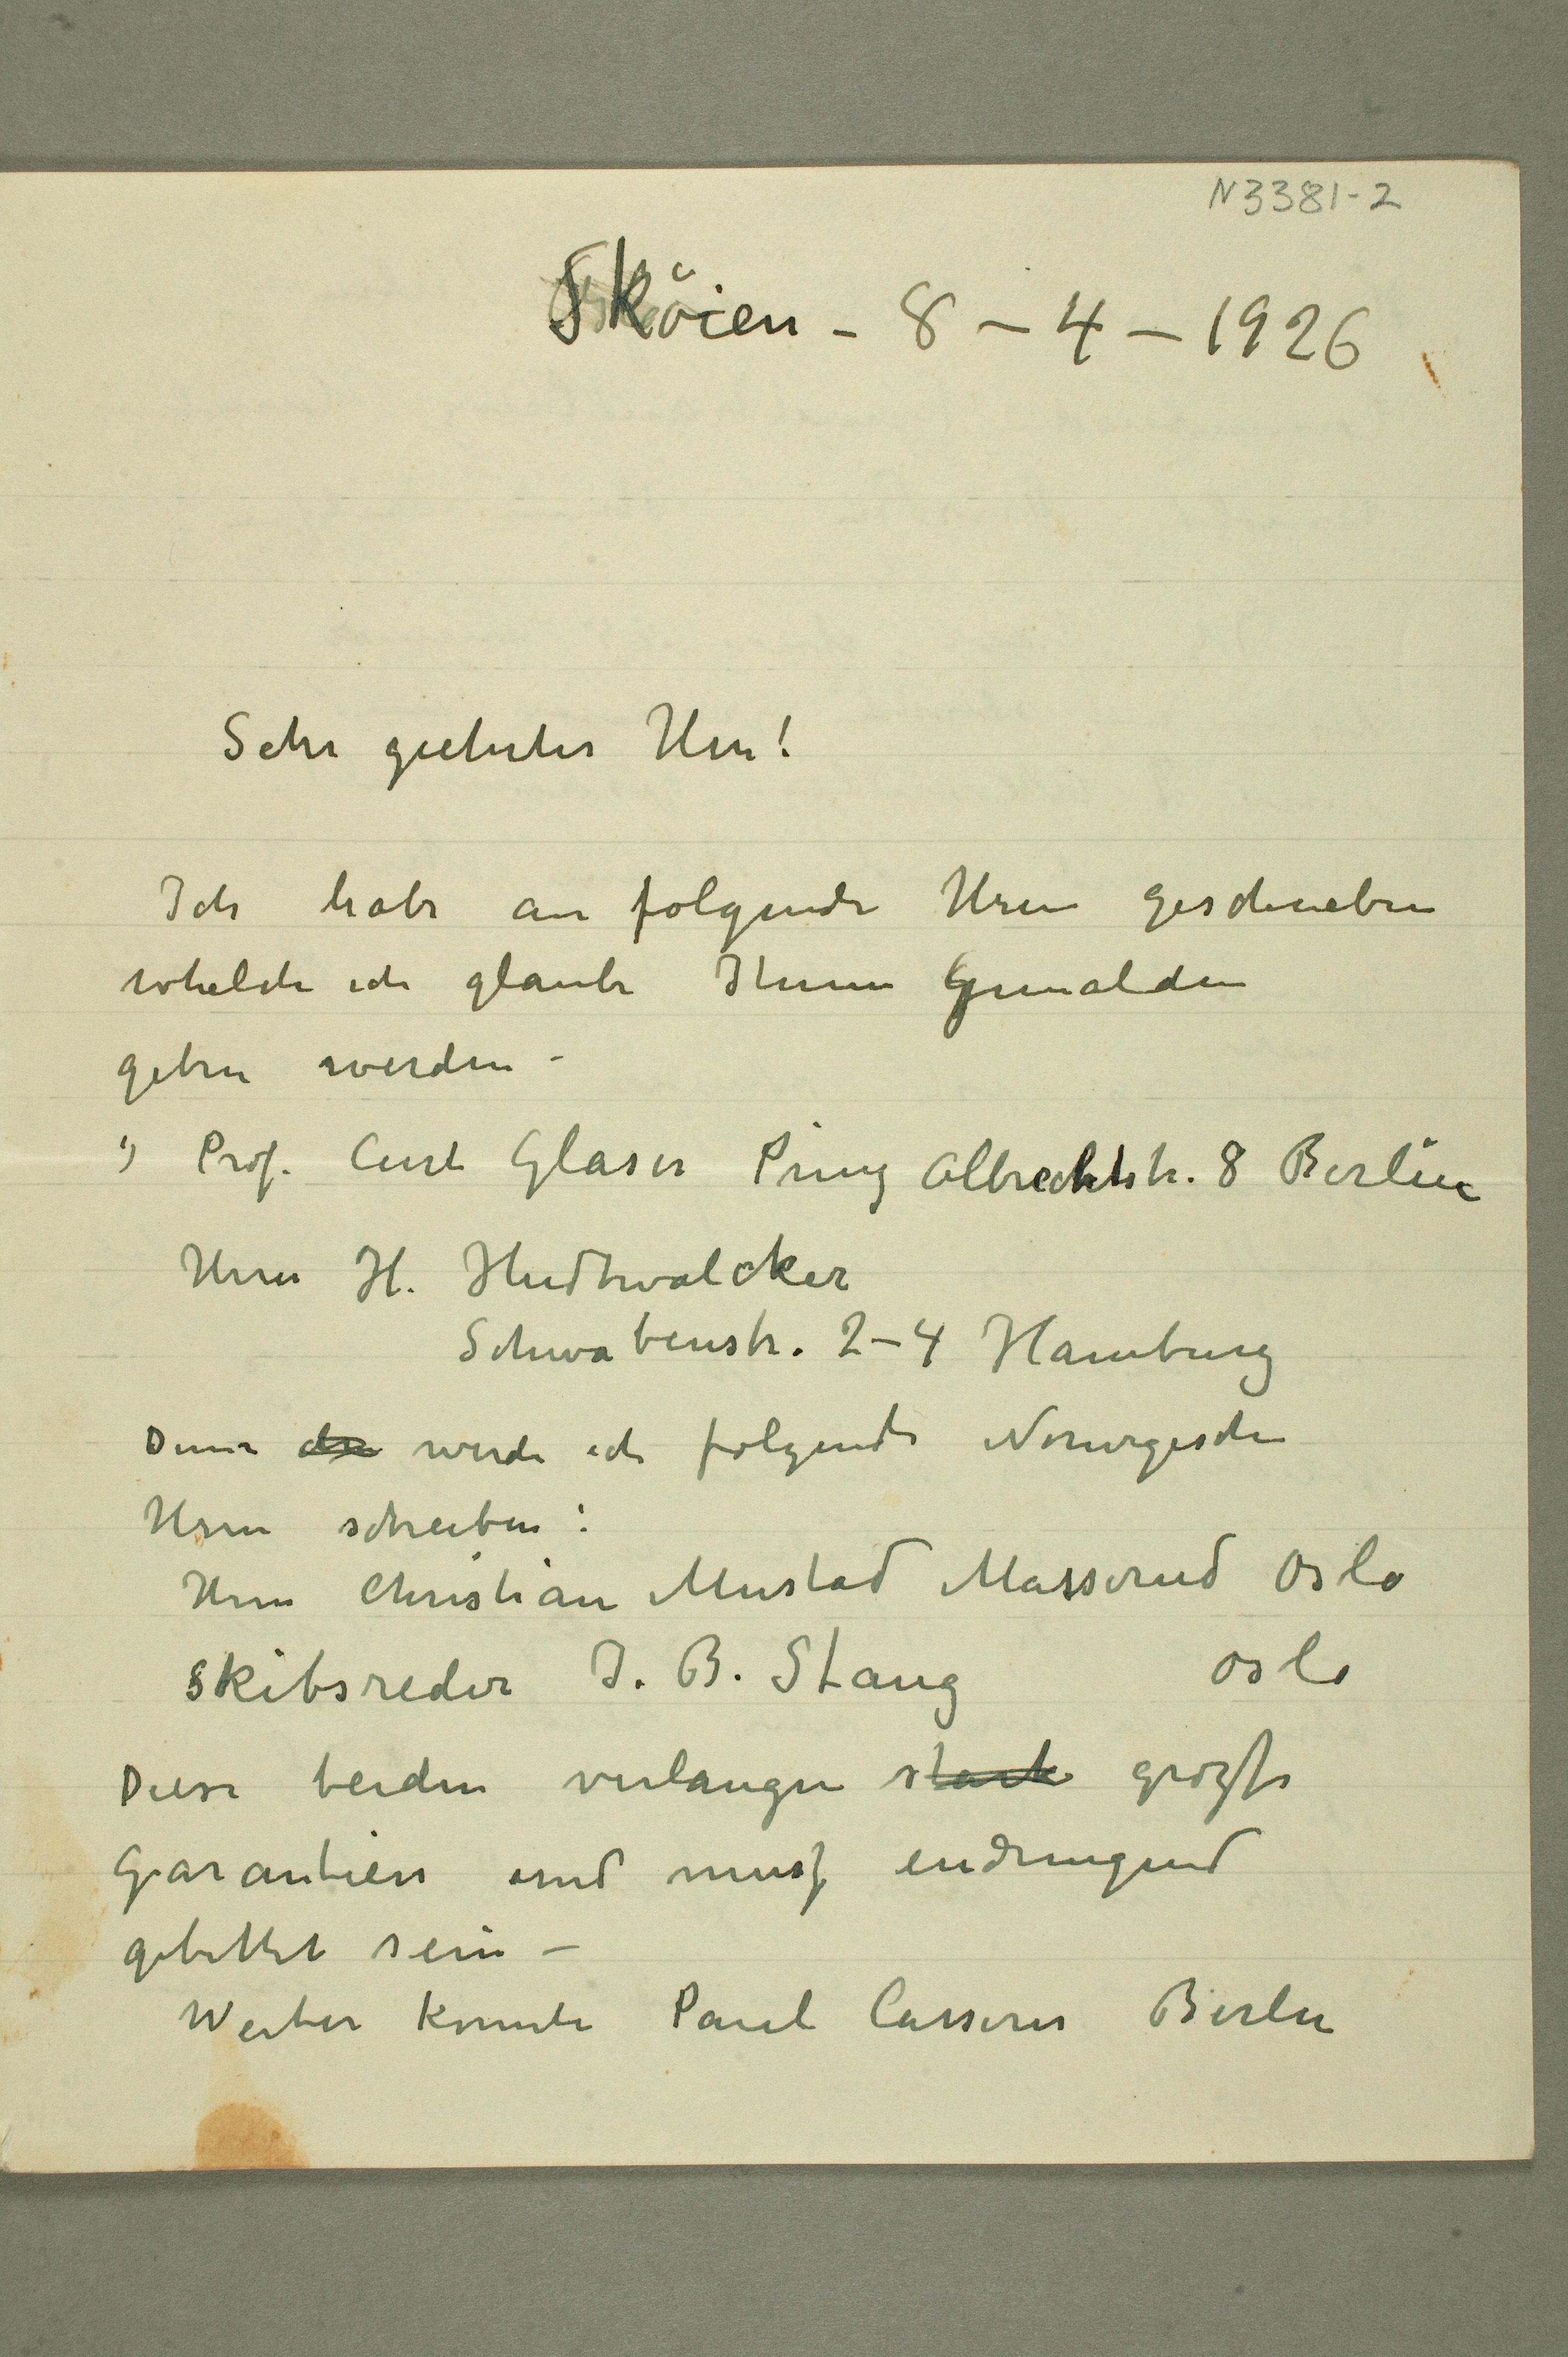 N3381-2
Sköien - 8 - 4 - 1926
Sehr geehrter Herr!
Ich habe an folgende Herrn geschrieben
whelche ich glaube Ihnen Gemälden
geben werden -
1) Prof. Curt Glaser Prinz Albrechtstr. 8 Berlin
Herrn H. Hudtwalcker
Schwabenstr. 2-4 Hamburg
werde ich folgende Norwegische
Herrn schreiben:
Herrn Christian Mustad Masserud Oslo
Skibsreder J. B. Stang Oslo
Diese beiden verlangen stark grozse
Garantien und musz eindringend
gebittet sein -
Weiter konnte Paul Casserer Berlin